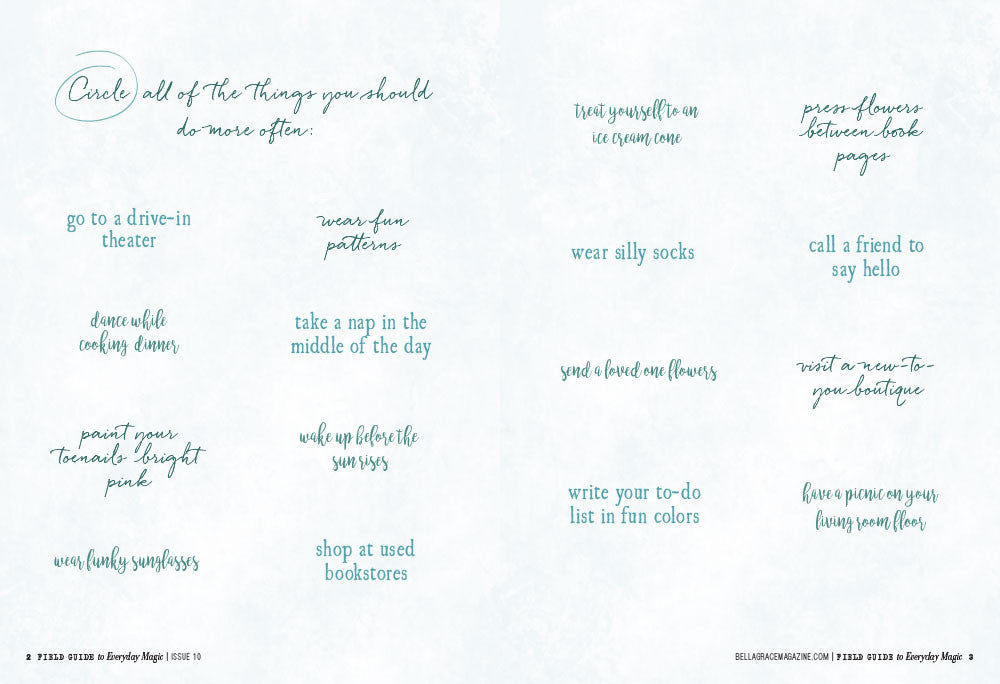 Circle all of the things you should
do more often:
go to a drive-in
theater
wear fun
patterns
dance while
cooking dinner
take a nap in the
middle of the day
paint your
toenails bright
pink
wake up before the
sun rises
wear funky sunglasses
shop at used
bookstores
2 FIELD GUIDE to Everyday Magic | ISSUE 10
treat yourself to an
ice cream cone
press flowers
between book
pages
wear silly socks
call a friend to
say hello
send a loved one flowers
visit a new-to-
you boutique
write your to-do
list in fun colors
have a picnic on your
living room floor
BELLAGRACEMAGAZINE.COM | FIELD GUIDE to Everyday Magic 3